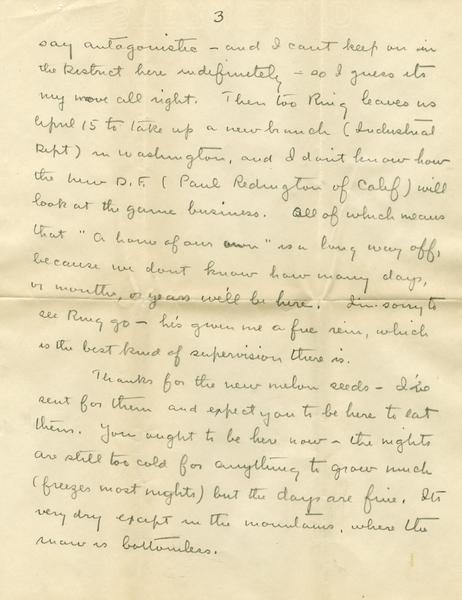 3
say antagonistic – and I cant keep on in
the District here indefinitely – so I guess its
my move all right. Then too Ring leaves us
April 15 to take up a new branch (Industrial
Dept) in Washington, and I don't know how
the new D.F. (Paul Redington of Calif) will
look at the game business. All of which means
that "a home of our own" is a long way off,
because we dont know how many days,
or months, or years we'll be here. I'm sorry to
see Ring go – he's given me a free rein, which
is the best kind of supervision there is.
Thanks for the new melon seeds –
sent for them and expect you to be here to eat
them. You ought to be here now – the nights
are still too cold for anything to grow much
(freezes most nights) but the days are fine. Its
very dry except in the mountains, where the
snow is bottomless.